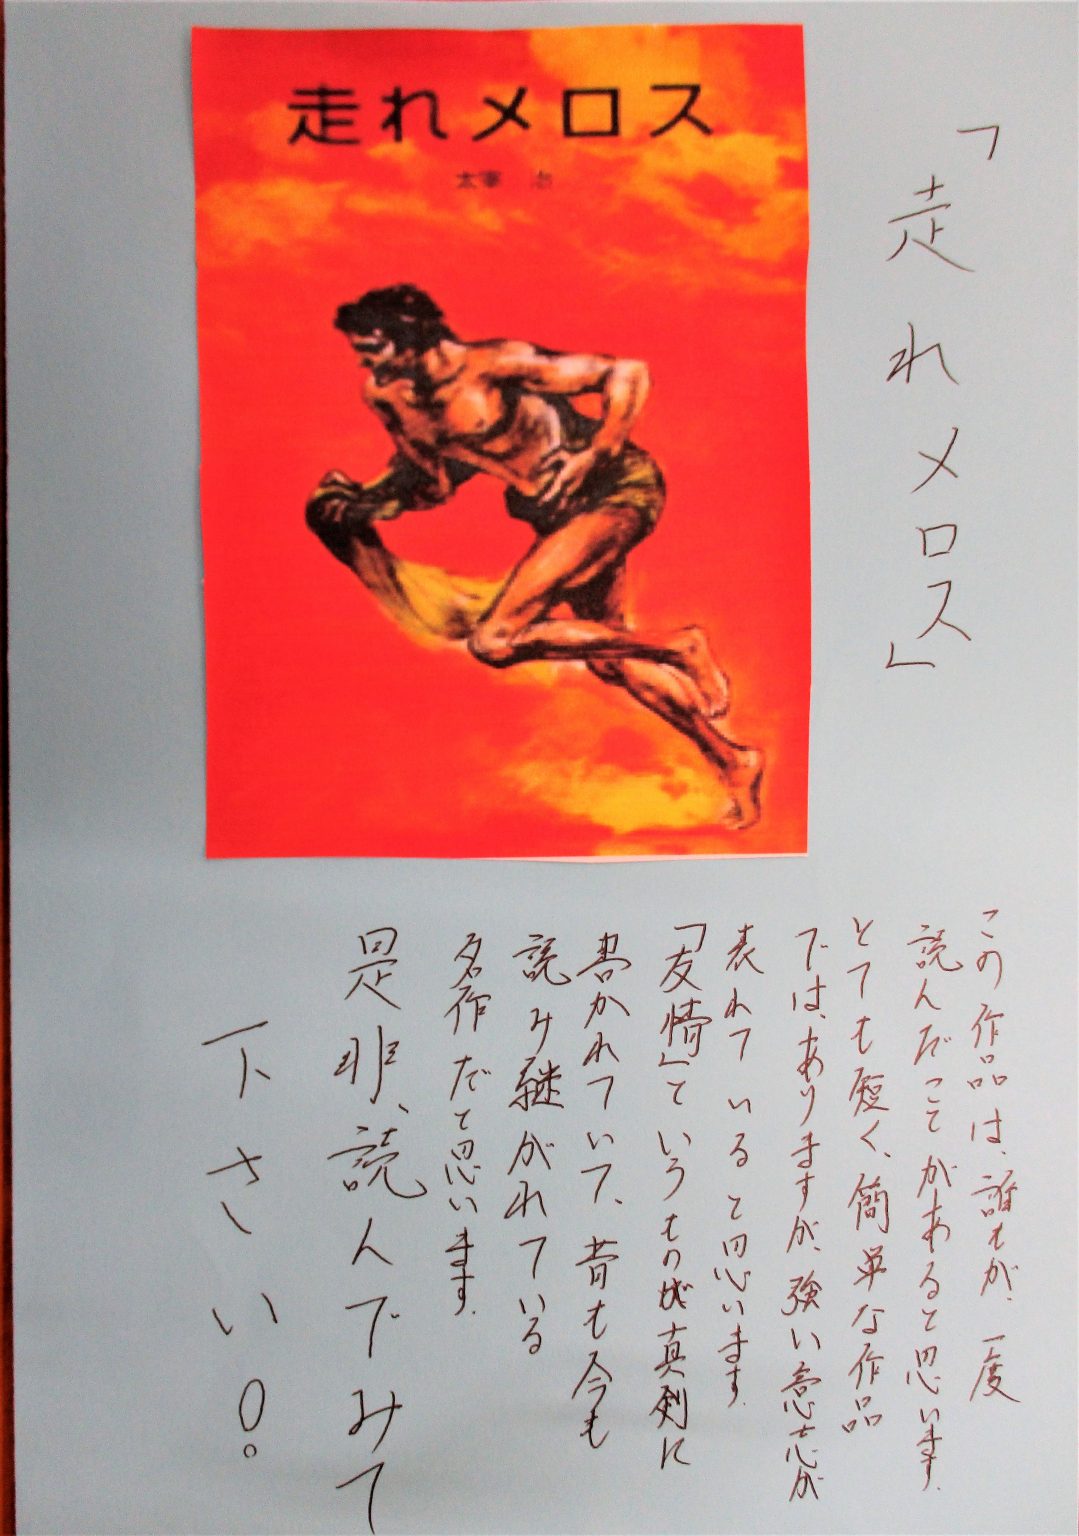 走れメロス
太宰 治
「走れメロス」
この作品は、誰もが、一度
読んだことがあると思います。
とても短く、簡単な作品
では、ありますが、強い意志が
表れていると思います。
「友情」というものが真剣に
書かれていて、昔も今も
読み継がれている
名作だと思います。
是非、読んでみて
下さい。